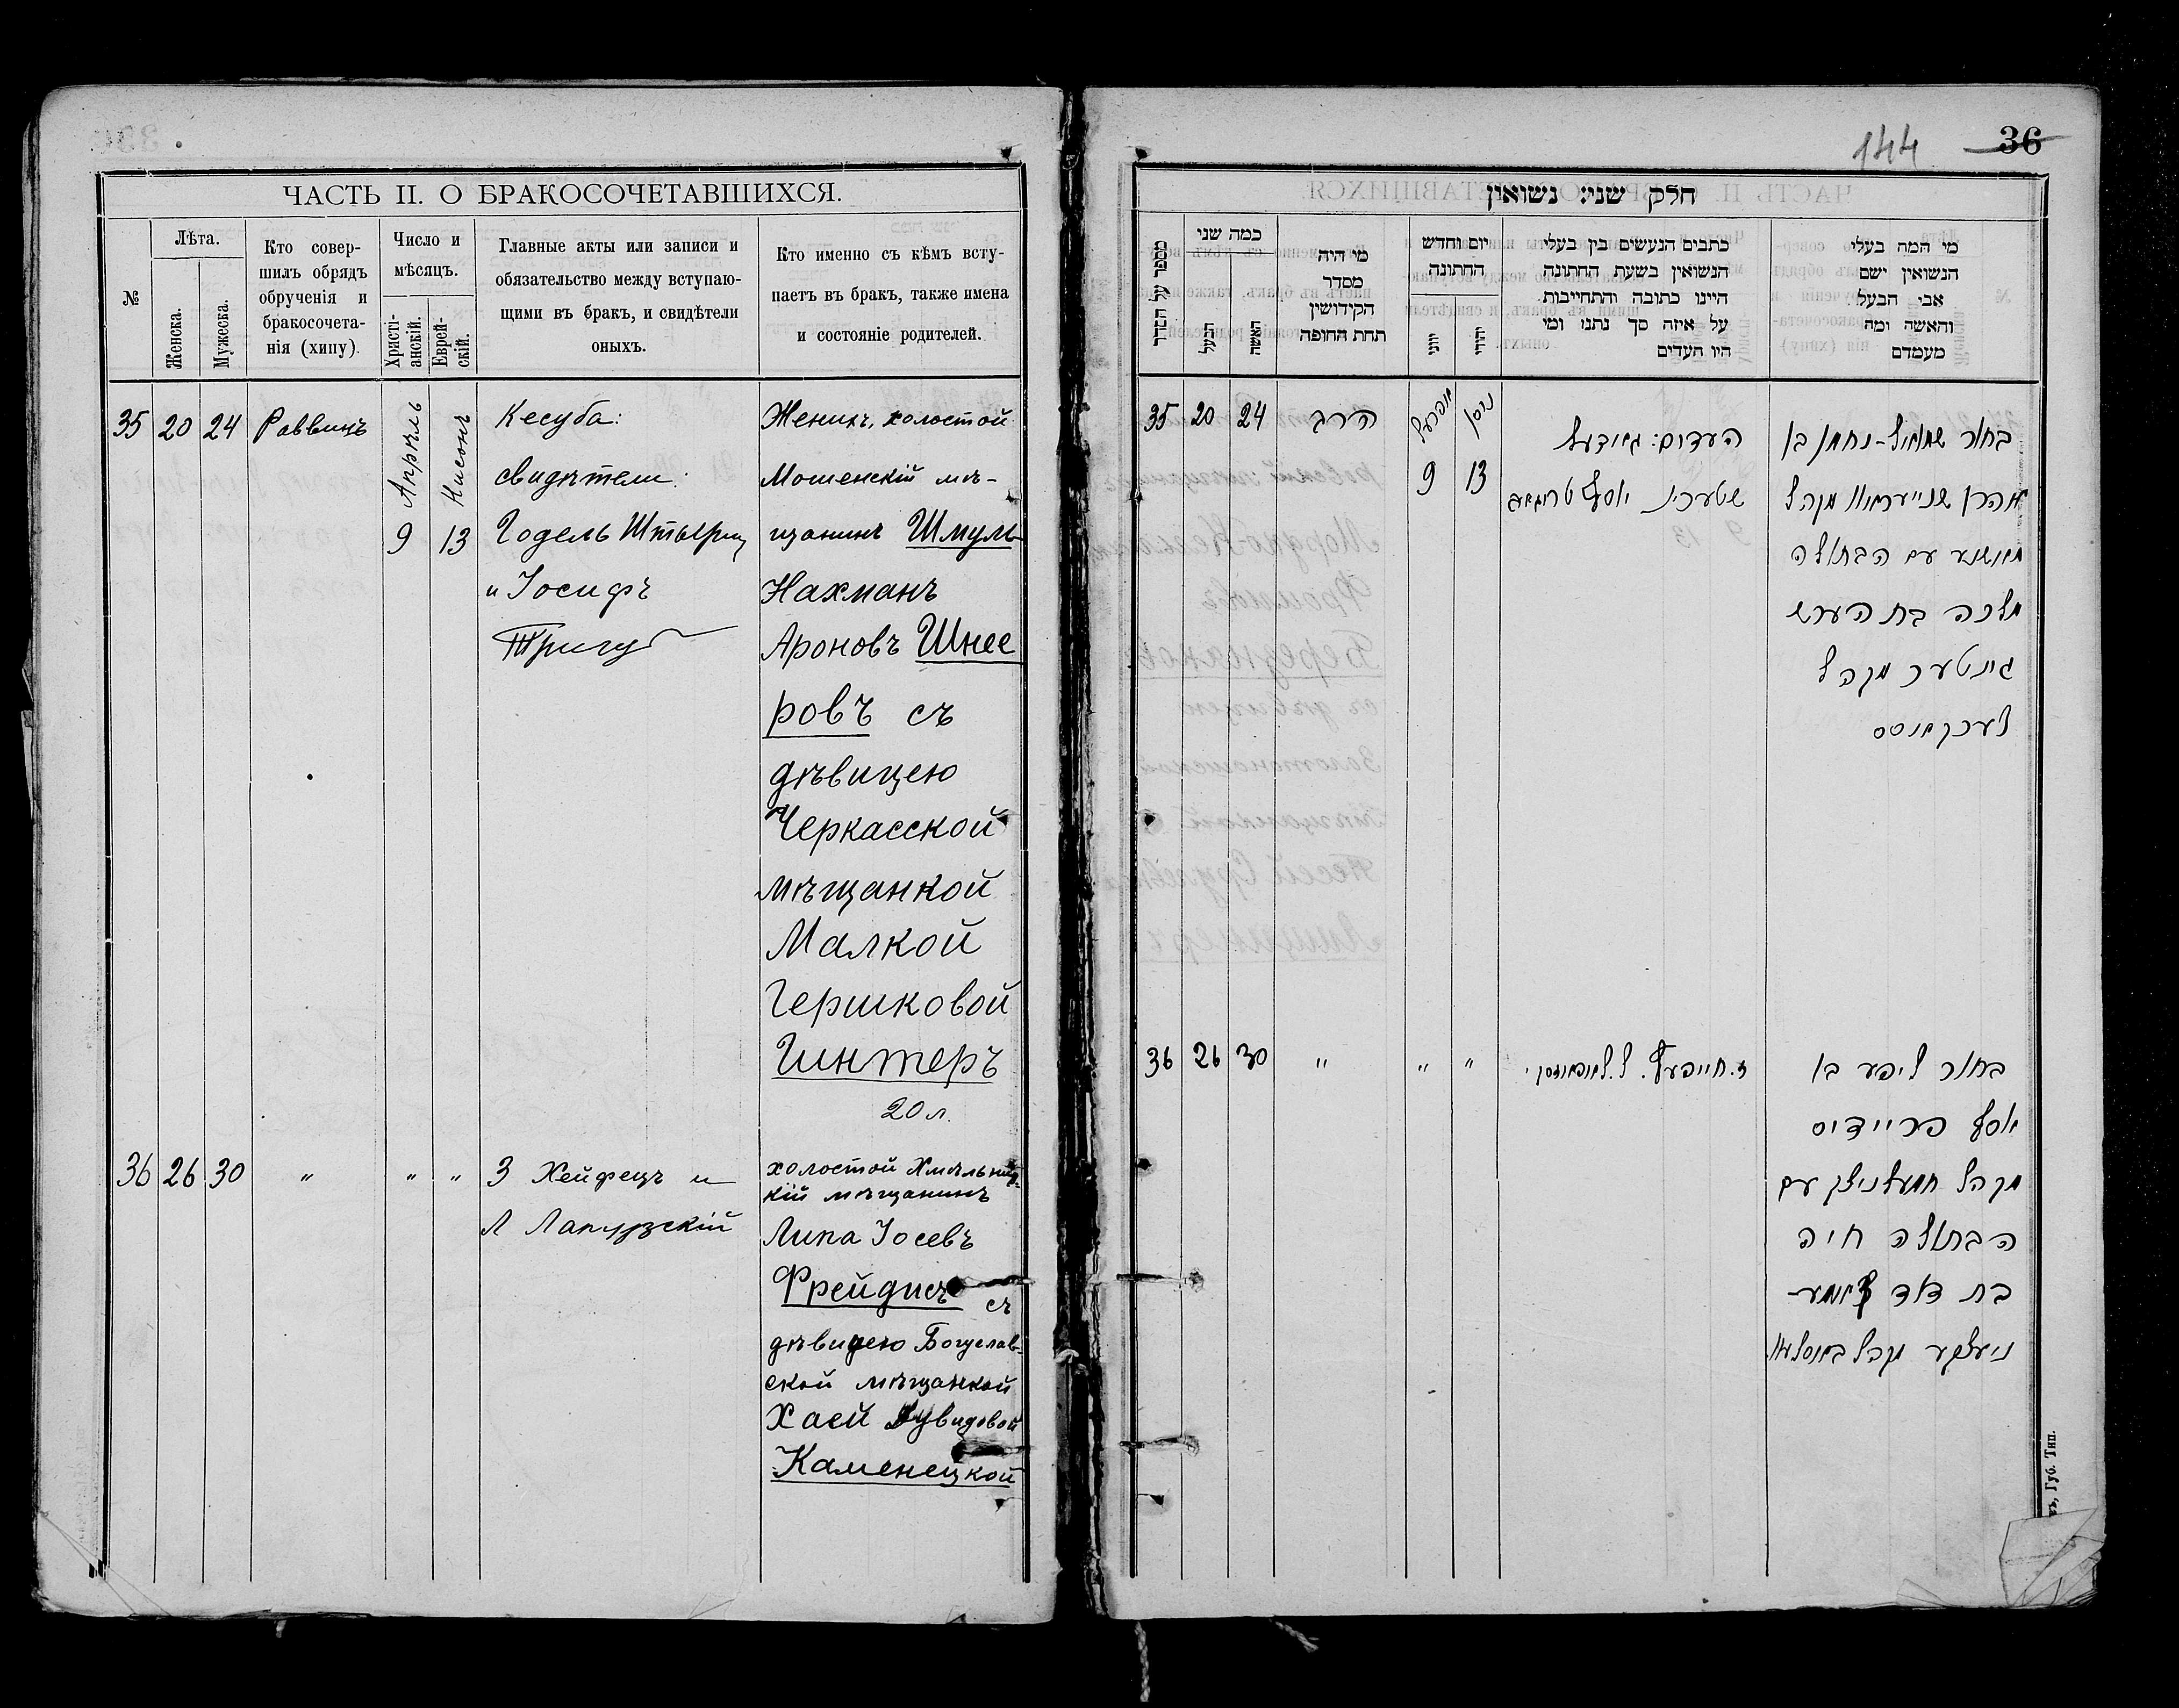 ЧАСТЬ II. О БРАКОСОЧЕТАВШИХСЯ.
№
Лѣта.
Женска.
Мужеска.
Кто совер-
шилъ обрядъ
обрученія и
бракосочета-
нія (хипу).
Число и
мѣсяцъ.
Христі-
анскій.
Еврей-
скій.
Главные акты или записи и
обязательство между вступаю-
щими въ бракъ, и свидѣтели
оныхъ.
Кто именно съ кѣмъ всту-
паетъ въ бракъ, также имена
и состояніе родителей.
35 20 24 Раввинъ
Апрѣль
9
Нисонъ
13
Кесуба:
свидѣтели:
Годель
и Іосифъ
Тригуб
Женихъ, холостой
Мошенскій мѣ-
щанинъ Шмуль
Нахманъ
Ароновъ Шнее
ровъ съ
дѣвицею
Черкасской
мѣщанкой
Малкой
Гершковой
Гинтеръ
20 л.
36 26 30 " " "
З Хейфецъ и
Л
холостой Хмѣльниц-
кій мѣщанинъ
Липа Іосевъ
Фрейдисъ съ
дѣвицею Богуслав-
ской мѣщанкой
Хаей Дувидовой
Каменецкой
144 36
חלק שני: נשואין
מספר על הסדר
כמה שני
הבעל
האשה
מי היה
מסדר
הקידושין
תחת החופה
יום וחדש
החתונה
יוני
יהודי
כתבים הנעשים בין בעלי
הנשואין בשעת החתונה
היינו כתובה והתחייבות
על איזה סך נתנו ומי
היו העדים
מי המה בעלי
הנשואין ישם
אבי הבעל
והאשה ומה
מעמדם
35 20 24 הרב
אפרעל
9
ניסן
13
העדים: גאדעל
יוסף
בחור שמואל-נחמן בן
אהרן שנייעראוו מקהל
מאשנע עם הבתולה
מלכה בת הערש
גינטער מקהל
טערקאסס
36 26 30 " " "
ז. חייפעץ. ל.
בחור ליפע בן
יוסף פריידיס
מקהל חמעלניצק עם
הבתולה חיה
בת דוד קאמע-
ניעצקע מקהל באסלאוו
Губ. Тип.